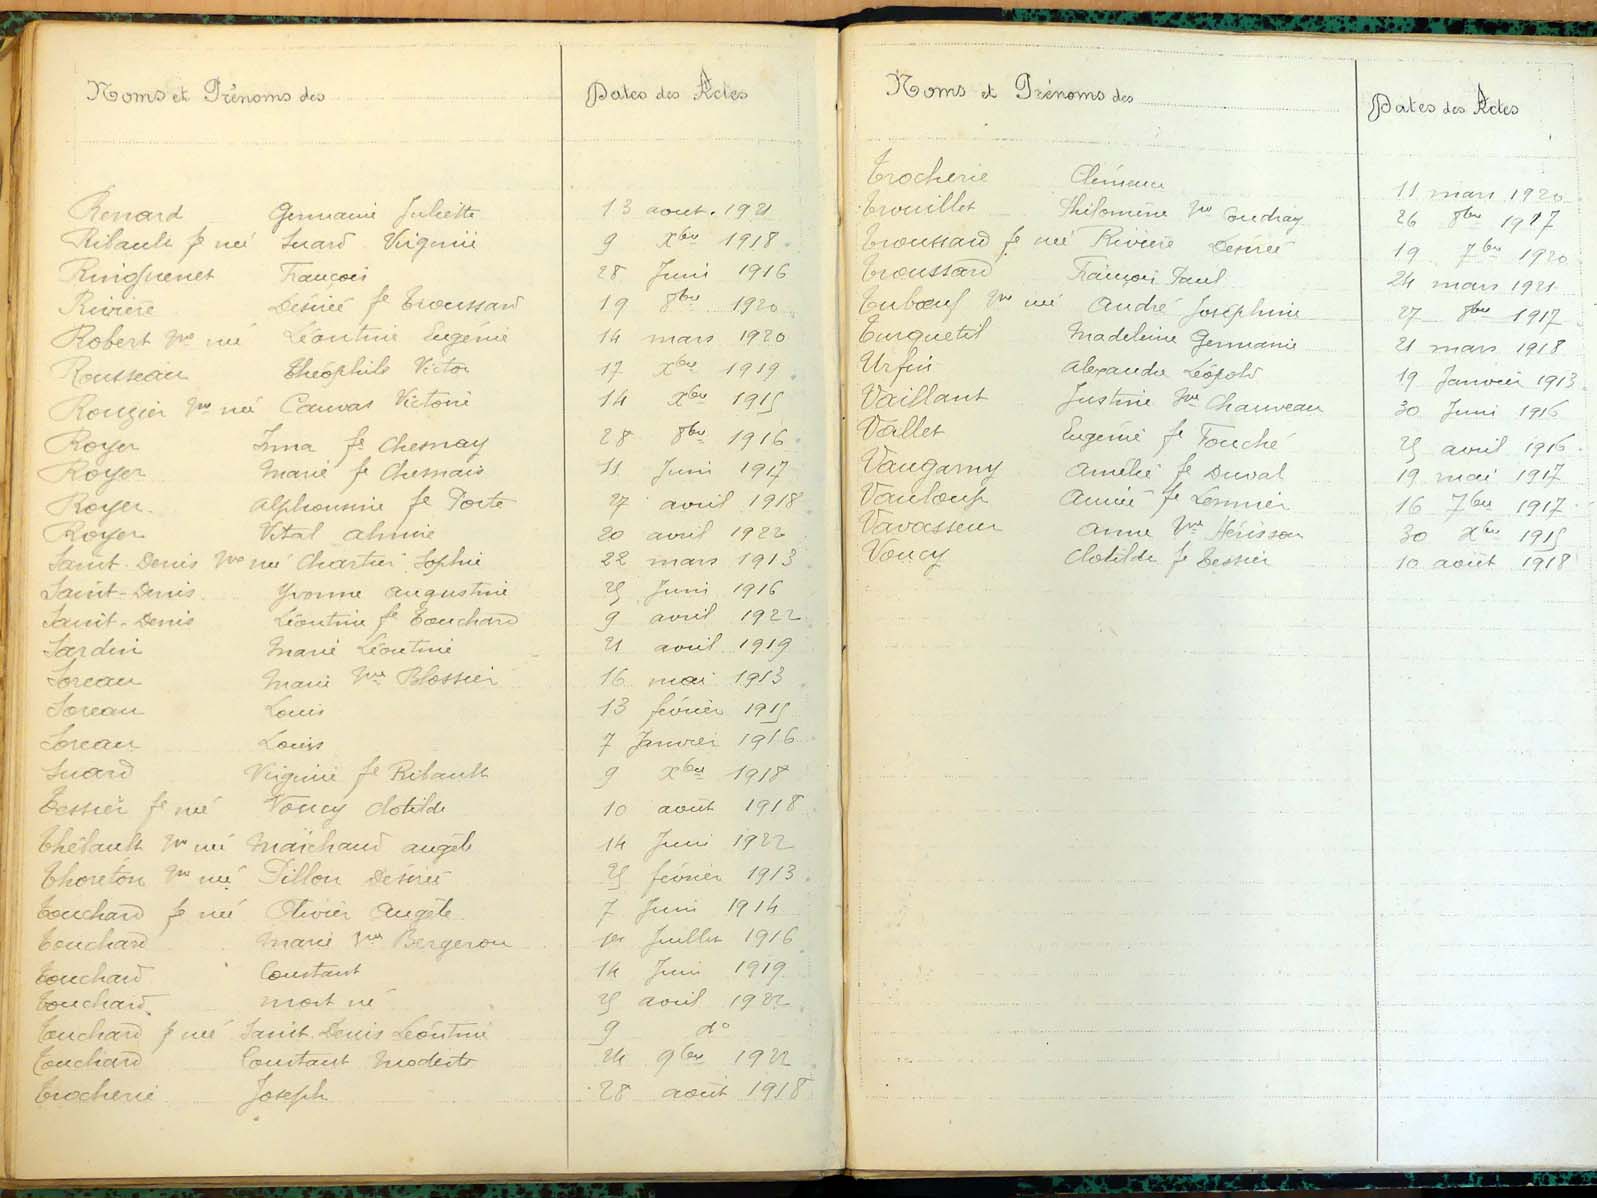 Noms et Prénoms des
Dates des Actes
Renard Germaine Juliette 13 aout. 1921
Ribault fe née Suard Virginie 9 Xbre 1918
Ringuenet François 28 Juin 1916
Rivière Désirée fe Troussard 19 8bre 1920
Robert Vve née Léontine Eugénie 14 mars 1920
Rousseau Théophile Victor 17 Xbre 1919
Rouzier Vve née Cauvas Victorie 14 Xbre 1915
Royer Irma fe Chesnay 28 8bre 1916
Royer Marie fe Chesnais 11 Juin 1917
Royer Alphonsine fe Porte 27 avril 1918
Royer Vital Almire 20 avril 1922
Saint-Denis Vve née Chartier Sophie 22 mars 1913
Saint-Denis Yvonne Augustine 25 Juin 1916
Saint-Denis Léontine fe Touchard 9 avril 1922
Sardin Marie Léontine 21 avril 1919
Soreau Marie Vve Blossier 16 mai 1913
Soreau Louis 13 février 1915
Soreau Louis 7 Janvier 1916
Suard Virginie fe Ribault 9 Xbre 1918
Tessier fe née Voucy Clotilde 10 août 1918
Thébault Vve née Maîchaud Angèle 14 Juin 1922
Thoreton Vve née Pillon Désirée 25 février 1913
Touchard fe née Olivier Angèle 7 Juin 1914
Touchard Marie Vve Bergeron 1er Juillet 1916
Touchard Constant 14 Juin 1919
Touchard mort né 25 avril 1922
Touchard fe née Saint Denis Léontine 9 do
Touchard Constant Modeste 24 9bre 1922
Trocherie Joseph 28 août 1918
Noms et Prénoms des
Dates des Actes
Trocherie Clémence 11 mars 1920
Trouillet Philomène Vve Coudray 26 8bre 1917
Troussard fe née Rivière Désirée 19 7bre 1920
Troussard François Paul 24 mars 1921
Tuboeuf Vve née André Joséphine 27 8bre 1917
Turquetil Madeleine Germaine 21 mars 1918
Urfin Alexandre Léopold 19 Janvier 1913
Vaillant Justine Vve Chauveau 30 Juin 1916
Vallet Eugénie fe Fouché 25 avril 1916
Vaugarny Amélie fe Duval 19 mai 1917
Vauloup Aimée fe Lemnier 16 7bre 1917
Vavasseur Anne Vve Hérisson 30 Xbre 1915
Voucy Clotilde fe Tessier 10 août 1918